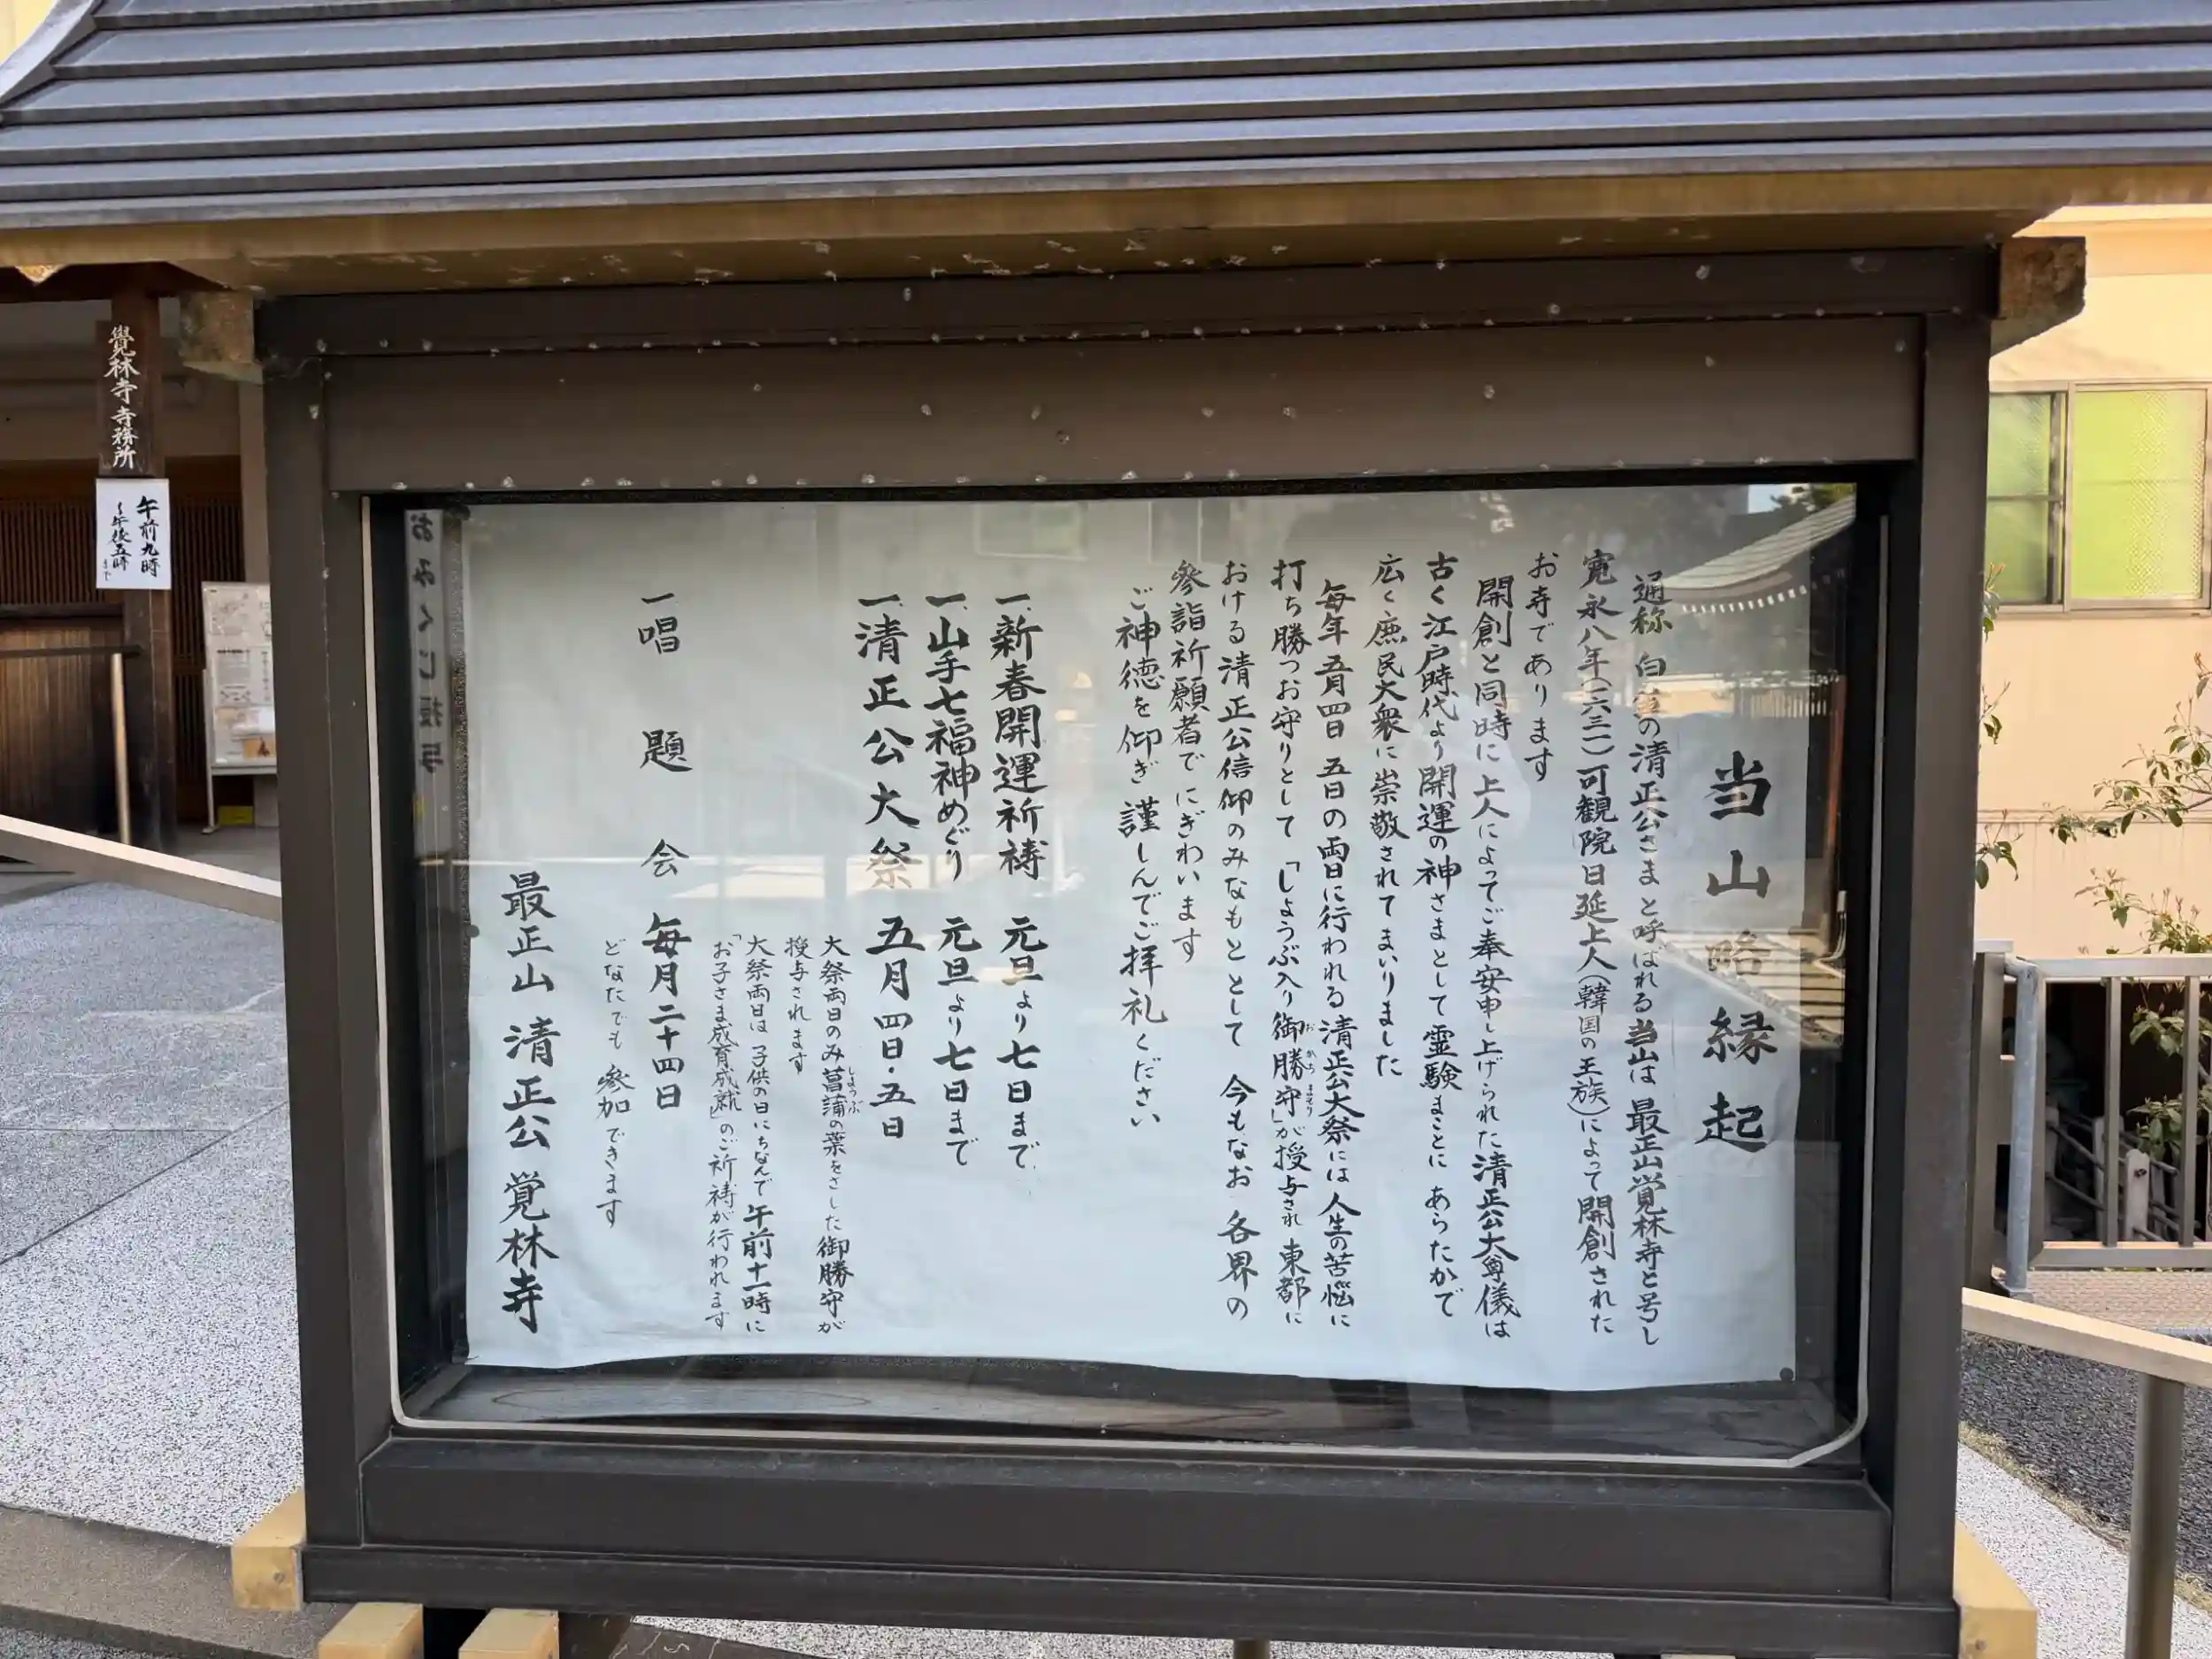 当山略縁起
通称 白金の清正公さまと呼ばれる当山は 最正山覚林寺と号し
寛永八年(一六三一)可観院日延上人(韓国の王族)によって開創された
お寺であります
開創と同時に上人によってご奉安申し上げられた清正公大尊儀は
古く江戸時代より開運の神さまとして霊験まことに あらたかで
広く庶民大衆に崇敬されてまいりました
毎年五月四日 五日の両日に行われる清正公大祭には人生の苦悩に
打ち勝つお守りとして「しょうぶ入り御勝守」が授与され 東都に
おかちまもり
おける清正公信仰のみなもととして 今もなお 各界の
参詣祈願者でにぎわいます
ご神徳を仰ぎ 謹しんでご拝礼ください
一、新春開運祈祷 元旦より七日まで
一、山手七福神めぐり 元旦より七日まで
一、清正公大祭 五月四日・五日
大祭両日のみ菖蒲の葉をさした御勝守が
しょうぶ
授与されます
大祭両日は子供の日にちなんで午前十一時に
「お子さま成育成就」のご祈祷が行われます
一、唱題会 毎月二十四日
どなたでも 参加できます
最正山 清正公 覚林寺
おみくじ授与
覺林寺寺務所
午前九時
〜午後五時まで